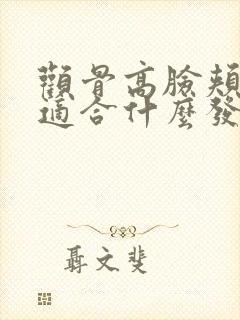 顴骨高臉頰
適合什麼發
聶文斐